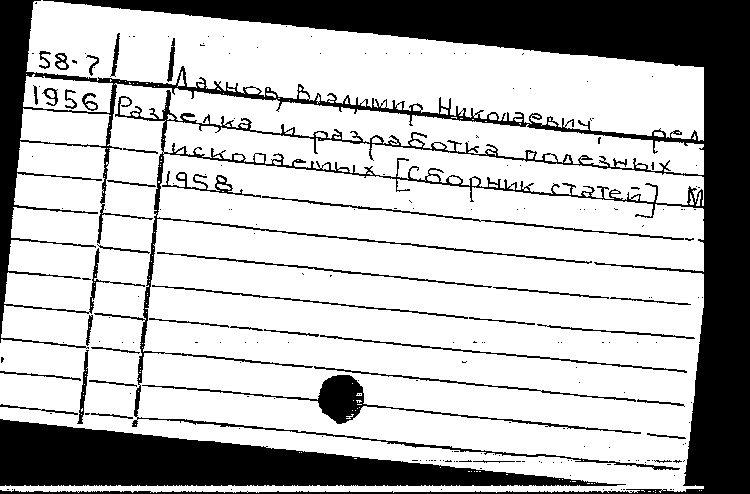 58-7 Дахнов, Владимир Николаевич, ред.
1956 Разведка и разработка полезных
ископаемых [Сборник статей] М
1958.